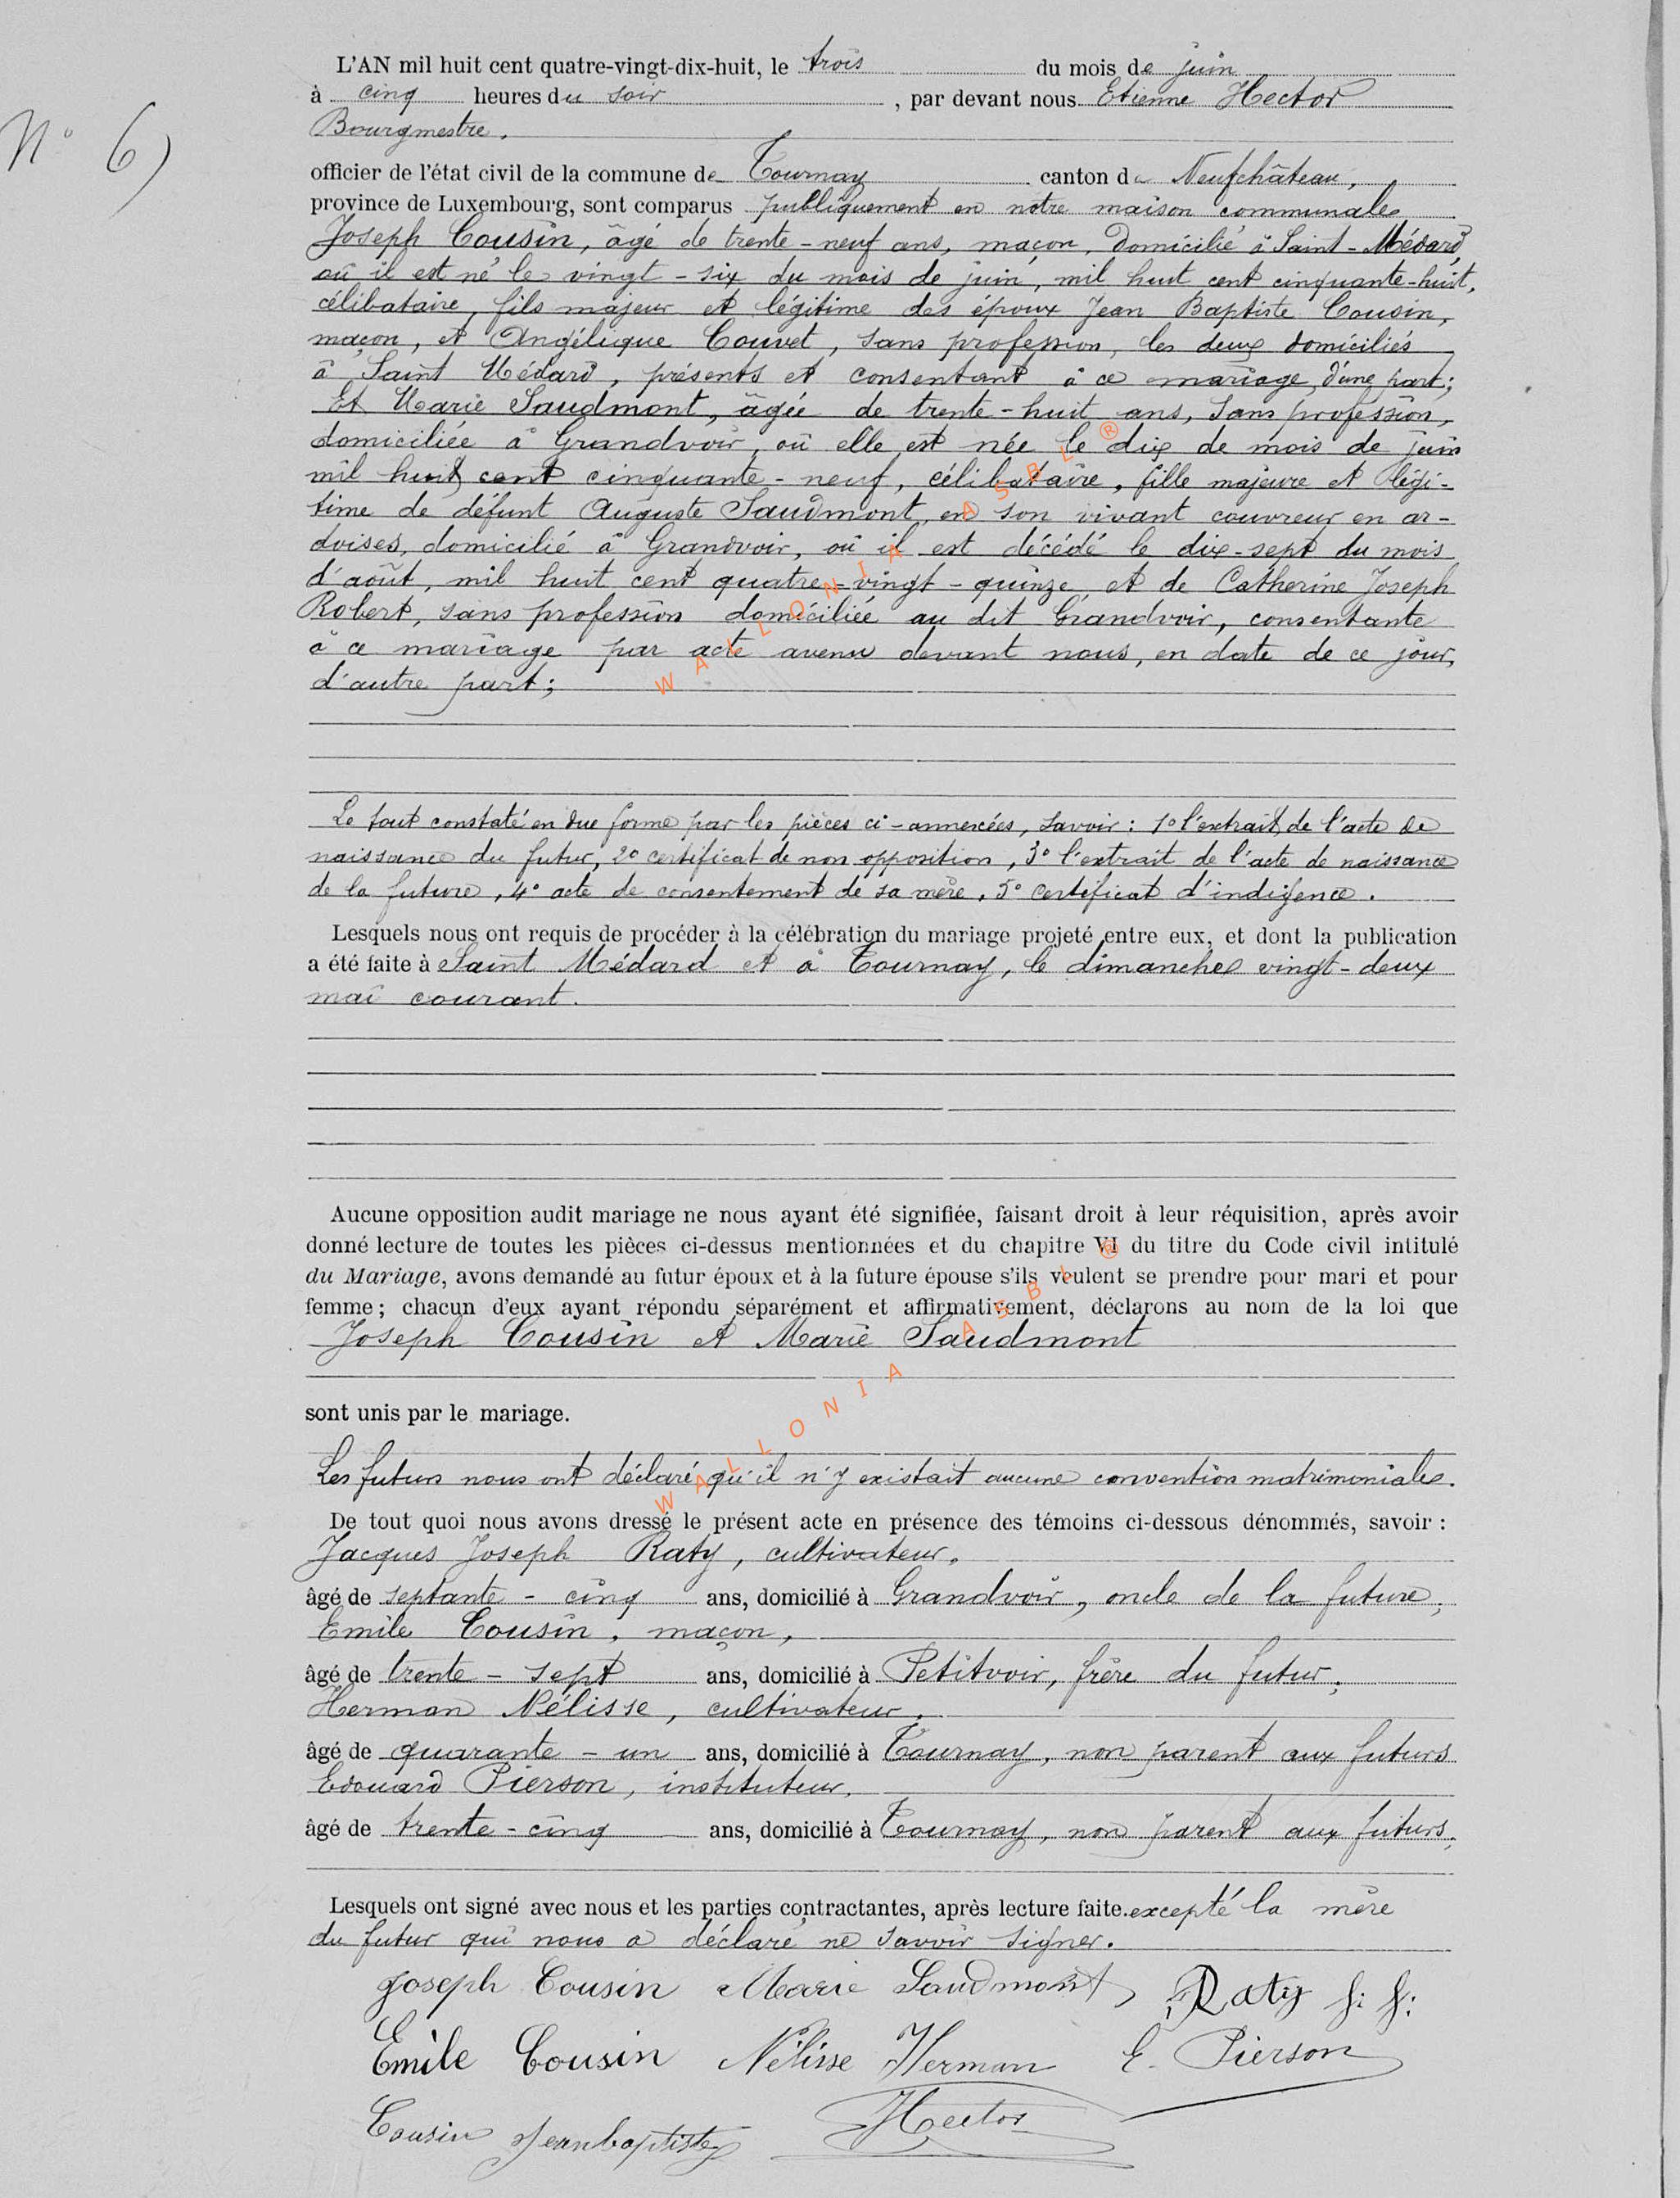 N° 6)
L'AN mil huit cent quatre-vingt-dix-huit, le trois du mois de juin
à cinq heures du soir, par devant nous Etienne Hector
Bourgmestre,
officier de l'état civil de la commune de Tournay canton de Neufchâteau,
province de Luxembourg, sont comparus publiquement en notre maison communale
Joseph Cousin, âgé de trente-neuf ans, maçon, domicilié à Saint-Médard,
où il est né le vingt-six du mois de juin, mil huit cent cinquante-huit,
célibataire, fils majeur et légitime des époux Jean Baptiste Cousin,
maçon, et Angélique Couvet, sans profession, les deux domiciliés
à Saint Médard, présents et consentant à ce mariage, d'une part;
Et Marie Saudmont, âgée de trente-huit ans, sans profession,
domiciliée à Grandvoir, où elle est née le dix de mois de juin
mil huit cent cinquante-neuf, célibataire, fille majeure et légi-
time de défunt Auguste Saudmont, en son vivant couvreur en ar-
doises, domicilié à Grandvoir, où il est décédé le dix-sept du mois
d'août, mil huit cent quatre-vingt-quinze, et de Catherine Joseph
Robert, sans profession domiciliée au dit Grandvoir, consentante
à ce mariage par acte avenu devant nous, en date de ce jour,
d'autre part;
Le tout constaté en due forme par les pièces ci-annexées, savoir: 1° l'extrait de l'acte de
naissance du futur, 2° certificat de non opposition, 3° l'extrait de l'acte de naissance
de la future, 4° acte de consentement de sa mère, 5° certificat d'indigence.
Lesquels nous ont requis de procéder à la célébration du mariage projeté entre eux, et dont la publication
a été faite à Saint Médard et à Tournay, le dimanche vingt-deux
mai courant.
Aucune opposition audit mariage ne nous ayant été signifiée, faisant droit à leur réquisition, après avoir
donné lecture de toutes les pièces ci-dessus mentionnées et du chapitre VI du titre du Code civil intitulé
du Mariage, avons demandé au futur époux et à la future épouse s'ils veulent se prendre pour mari et pour
femme; chacun d'eux ayant répondu séparément et affirmativement, déclarons au nom de la loi que
Joseph Cousin et Marie Saudmont
sont unis par le mariage.
Les futurs nous ont déclaré qu'il n'y existait aucune convention matrimoniale.
De tout quoi nous avons dressé le présent acte en présence des témoins ci-dessous dénommés, savoir :
Jacques Joseph Raty, cultivateur,
âgé de septante-cinq ans, domicilié à Grandvoir, oncle de la future;
Emile Cousin, maçon,
âgé de trente-sept ans, domicilié à Petitvoir, frère du futur;
Herman Nélisse, cultivateur,
âgé de quarante-un ans, domicilié à Tournay, non parent aux futurs
Edouard Pierson, instituteur,
âgé de trente-cinq ans, domicilié à Tournay, non parent aux futurs;
Lesquels ont signé avec nous et les parties contractantes, après lecture faite. excepté la mère
du futur qui nous a déclaré ne savoir signer.
Joseph Cousin Marie Saudmont Raty J: J:
Emile Cousin Nélisse Herman E. Pierson
Cousin Jeanbaptiste Hector
WALLONIA ASBL ®
WALLONIA ASBL ®